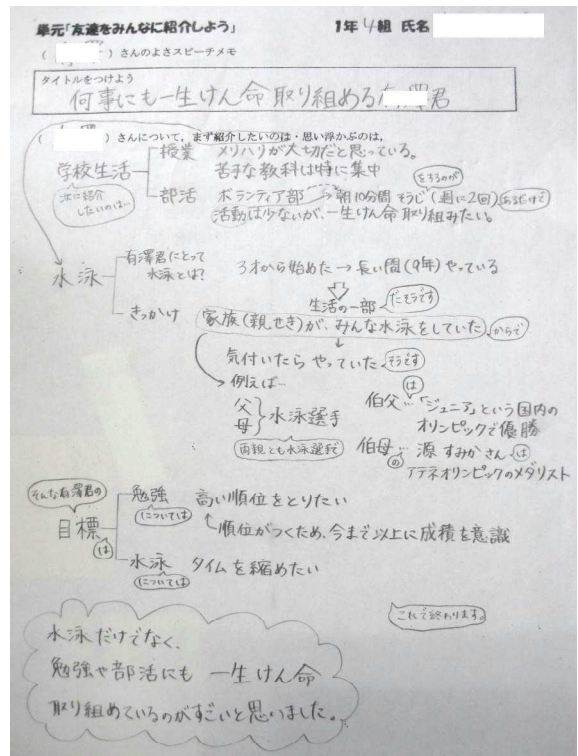 単元「友達をみんなに紹介しよう」 1年4組 氏名
( )さんのよさスピーチメモ
タイトルをつけよう
何事にも一生けん命取り組める 君
( )さんについて，まず紹介したいのは・思い浮かぶのは，
学校生活 授業 メリハリが大切だと思っている。
苦手な教科は特に集中
次に紹介したいのは…
部活 ボランティア部 → 朝10分間そうじ(週に2回) をするのが あるだけで
活動は少ないが、一生けん命取り組みたい。
水泳 有澤君にとって水泳とは？ 3才から始めた→長い間(9年)やっている
生活の一部 だそうです
きっかけ 家族(親せき)が、みんな水泳をしていた からで
気付いたら やっていた そうです
例えば…
父 母 } 水泳選手
両親とも水泳選手で
伯父… は 「ジュニア」という国内の
オリンピックで優勝
伯母… の 源 すみかさん は
アテネオリンピックのメダリスト
そんな有澤君の
目標 は
勉強 については 高い順位をとりたい
順位がつくため、今まで以上に成績を意識
水泳 については タイムを縮めたい
これで終わります。
水泳だけでなく、
勉強や部活にも 一生けん命
取り組めているのがすごいと思いました。